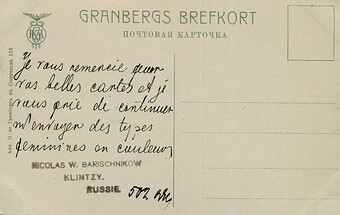 GRANBERGS BREFKORT
ПОЧТОВАЯ КАРТОЧКА
Je vous remercie pour
vos belles cartes et je
vous prie de continuer
m'envoyer des types
feminines en couleurs
NICOLAS W. BARISCHNIKOW
KLINTZY.
RUSSIE.